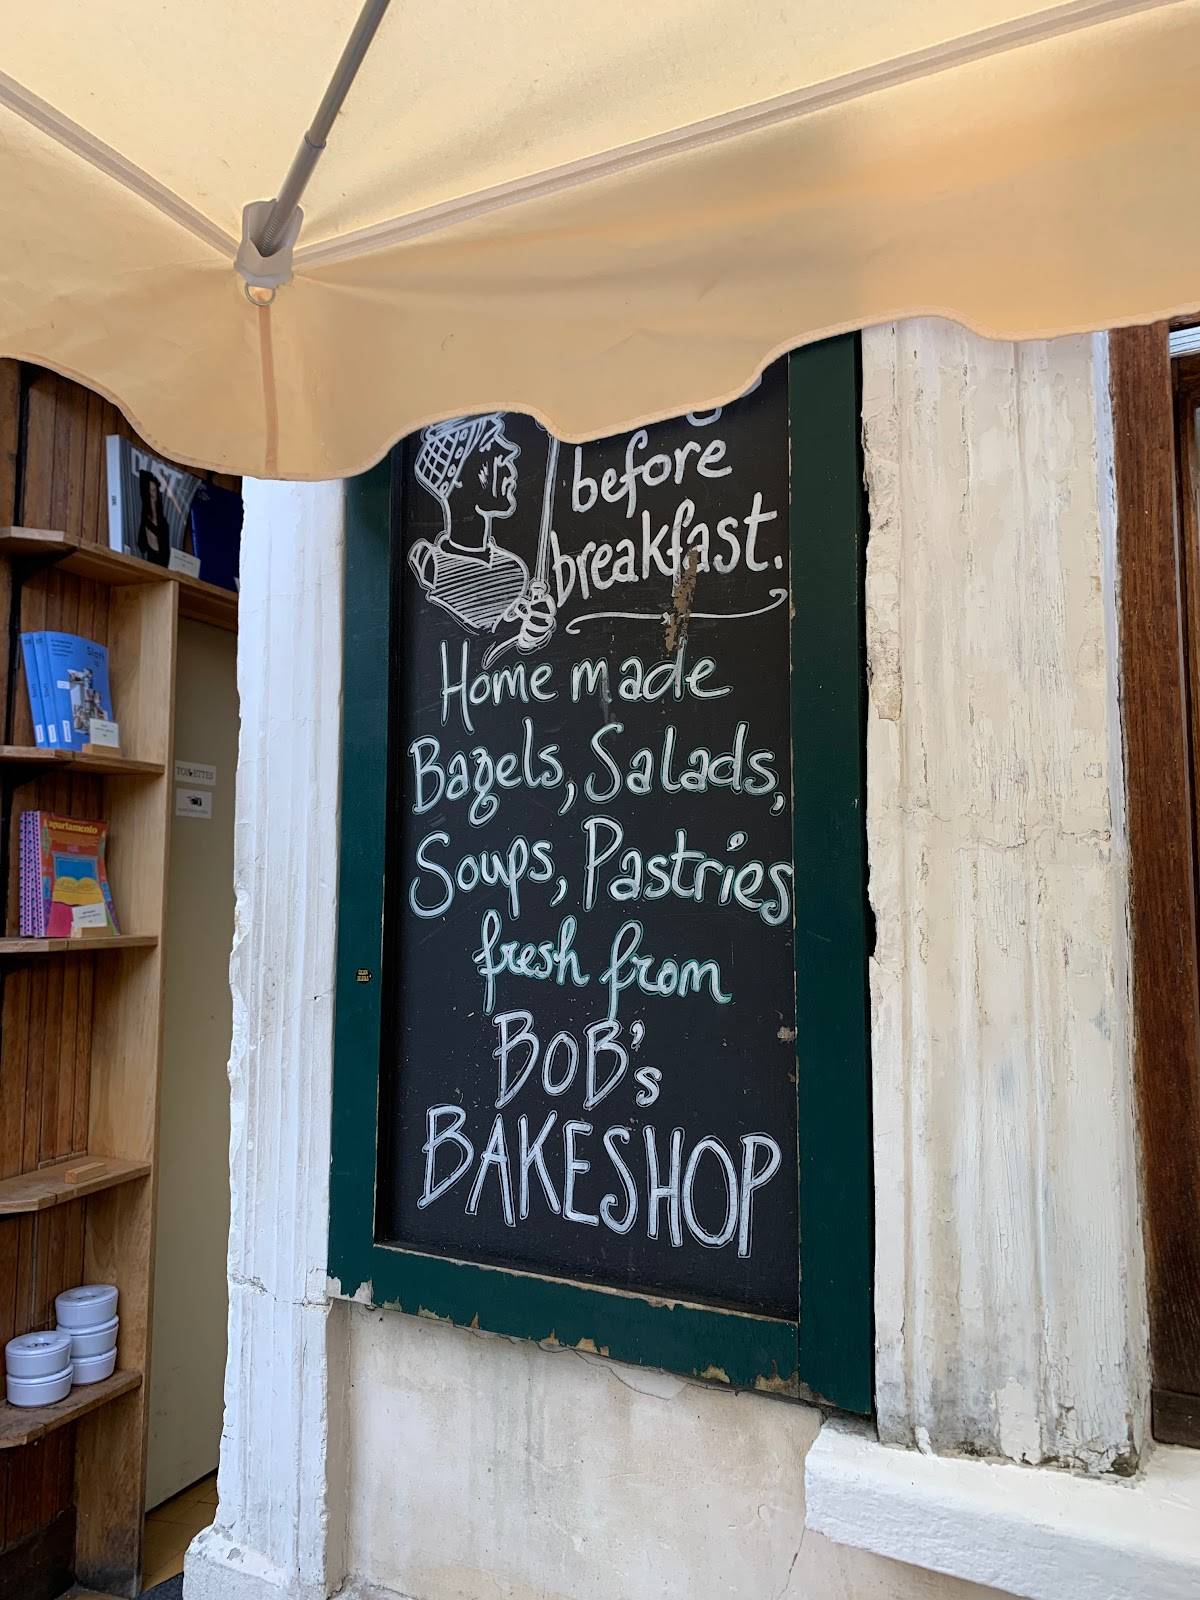 before
breakfast.
Home made
Bagels, Salads,
Soups, Pastries
fresh from
BOB's
BAKESHOP
DUST
apartamento